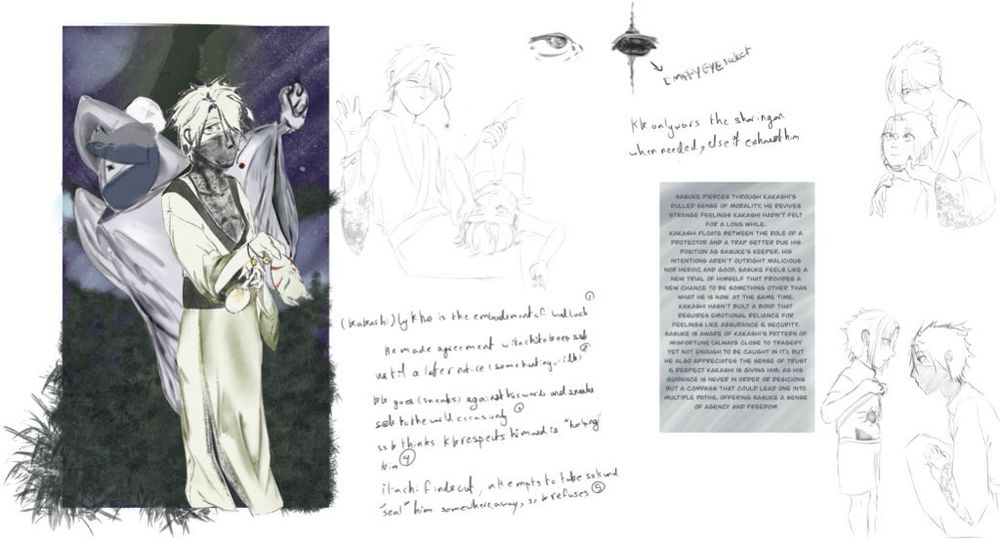 Empty eye socket
KK only wars the sharingan
when needed, else it exhaust him
SASUKE PIERCES THROUGH KAKASHI'S
DULLED SENSE OF MORALITY. HE REVIVES
STRANGE FEELINGS KAKASHI HADN'T FELT
FOR A LONG WHILE.
KAKASHI FLOATS BETWEEN THE ROLE OF A
PROTECTOR AND A TRAP SETTER DUE HIS
POSITION AS SASUKE'S KEEPER. HIS
INTENTIONS AREN'T OUTRIGHT MALICIOUS
NOR HEROIC AND GOOD. SASUKE FEELS LIKE A
NEW TRIAL OF HIMSELF THAT PROVIDES A
NEW CHANCE TO BE SOMETHING OTHER THAN
WHAT HE IS NOW. AT THE SAME TIME,
KAKASHI HASN'T BUILT A BOND THAT
REQUIRES EMOTIONAL RELIANCE FOR
FEELINGS LIKE ASSURANCE & SECURITY.
SASUKE IS AWARE OF KAKASHI'S PATTERN OF
MISFORTUNE (ALWAYS CLOSE TO TRAGEDY
YET NOT ENOUGH TO BE CAUGHT IN IT), BUT
HE ALSO APPRECIATES THE SENSE OF TRUST
& RESPECT KAKASHI IS GIVING HIM, AS HIS
GUIDANCE IS NEVER IN ORDER OR DESICIONS
BUT A COMPASS THAT COULD LEAD ONE INTO
MULTIPLE PATHS, OFFERING SASUKE A SENSE
OF AGENCY AND FREEDOM
①
(kakashi) is the embodiment of bad luck
He made agreement with itachi to keep ssk
until a later notice (something)
②
kk goes against his words and sneaks
ssk to the world occasionally
ssk thinks kk respects him and is "helping"
him ④
itachi finds out, attempts to take ssk and
"seal" him somewhere away, ssk refuses ⑤